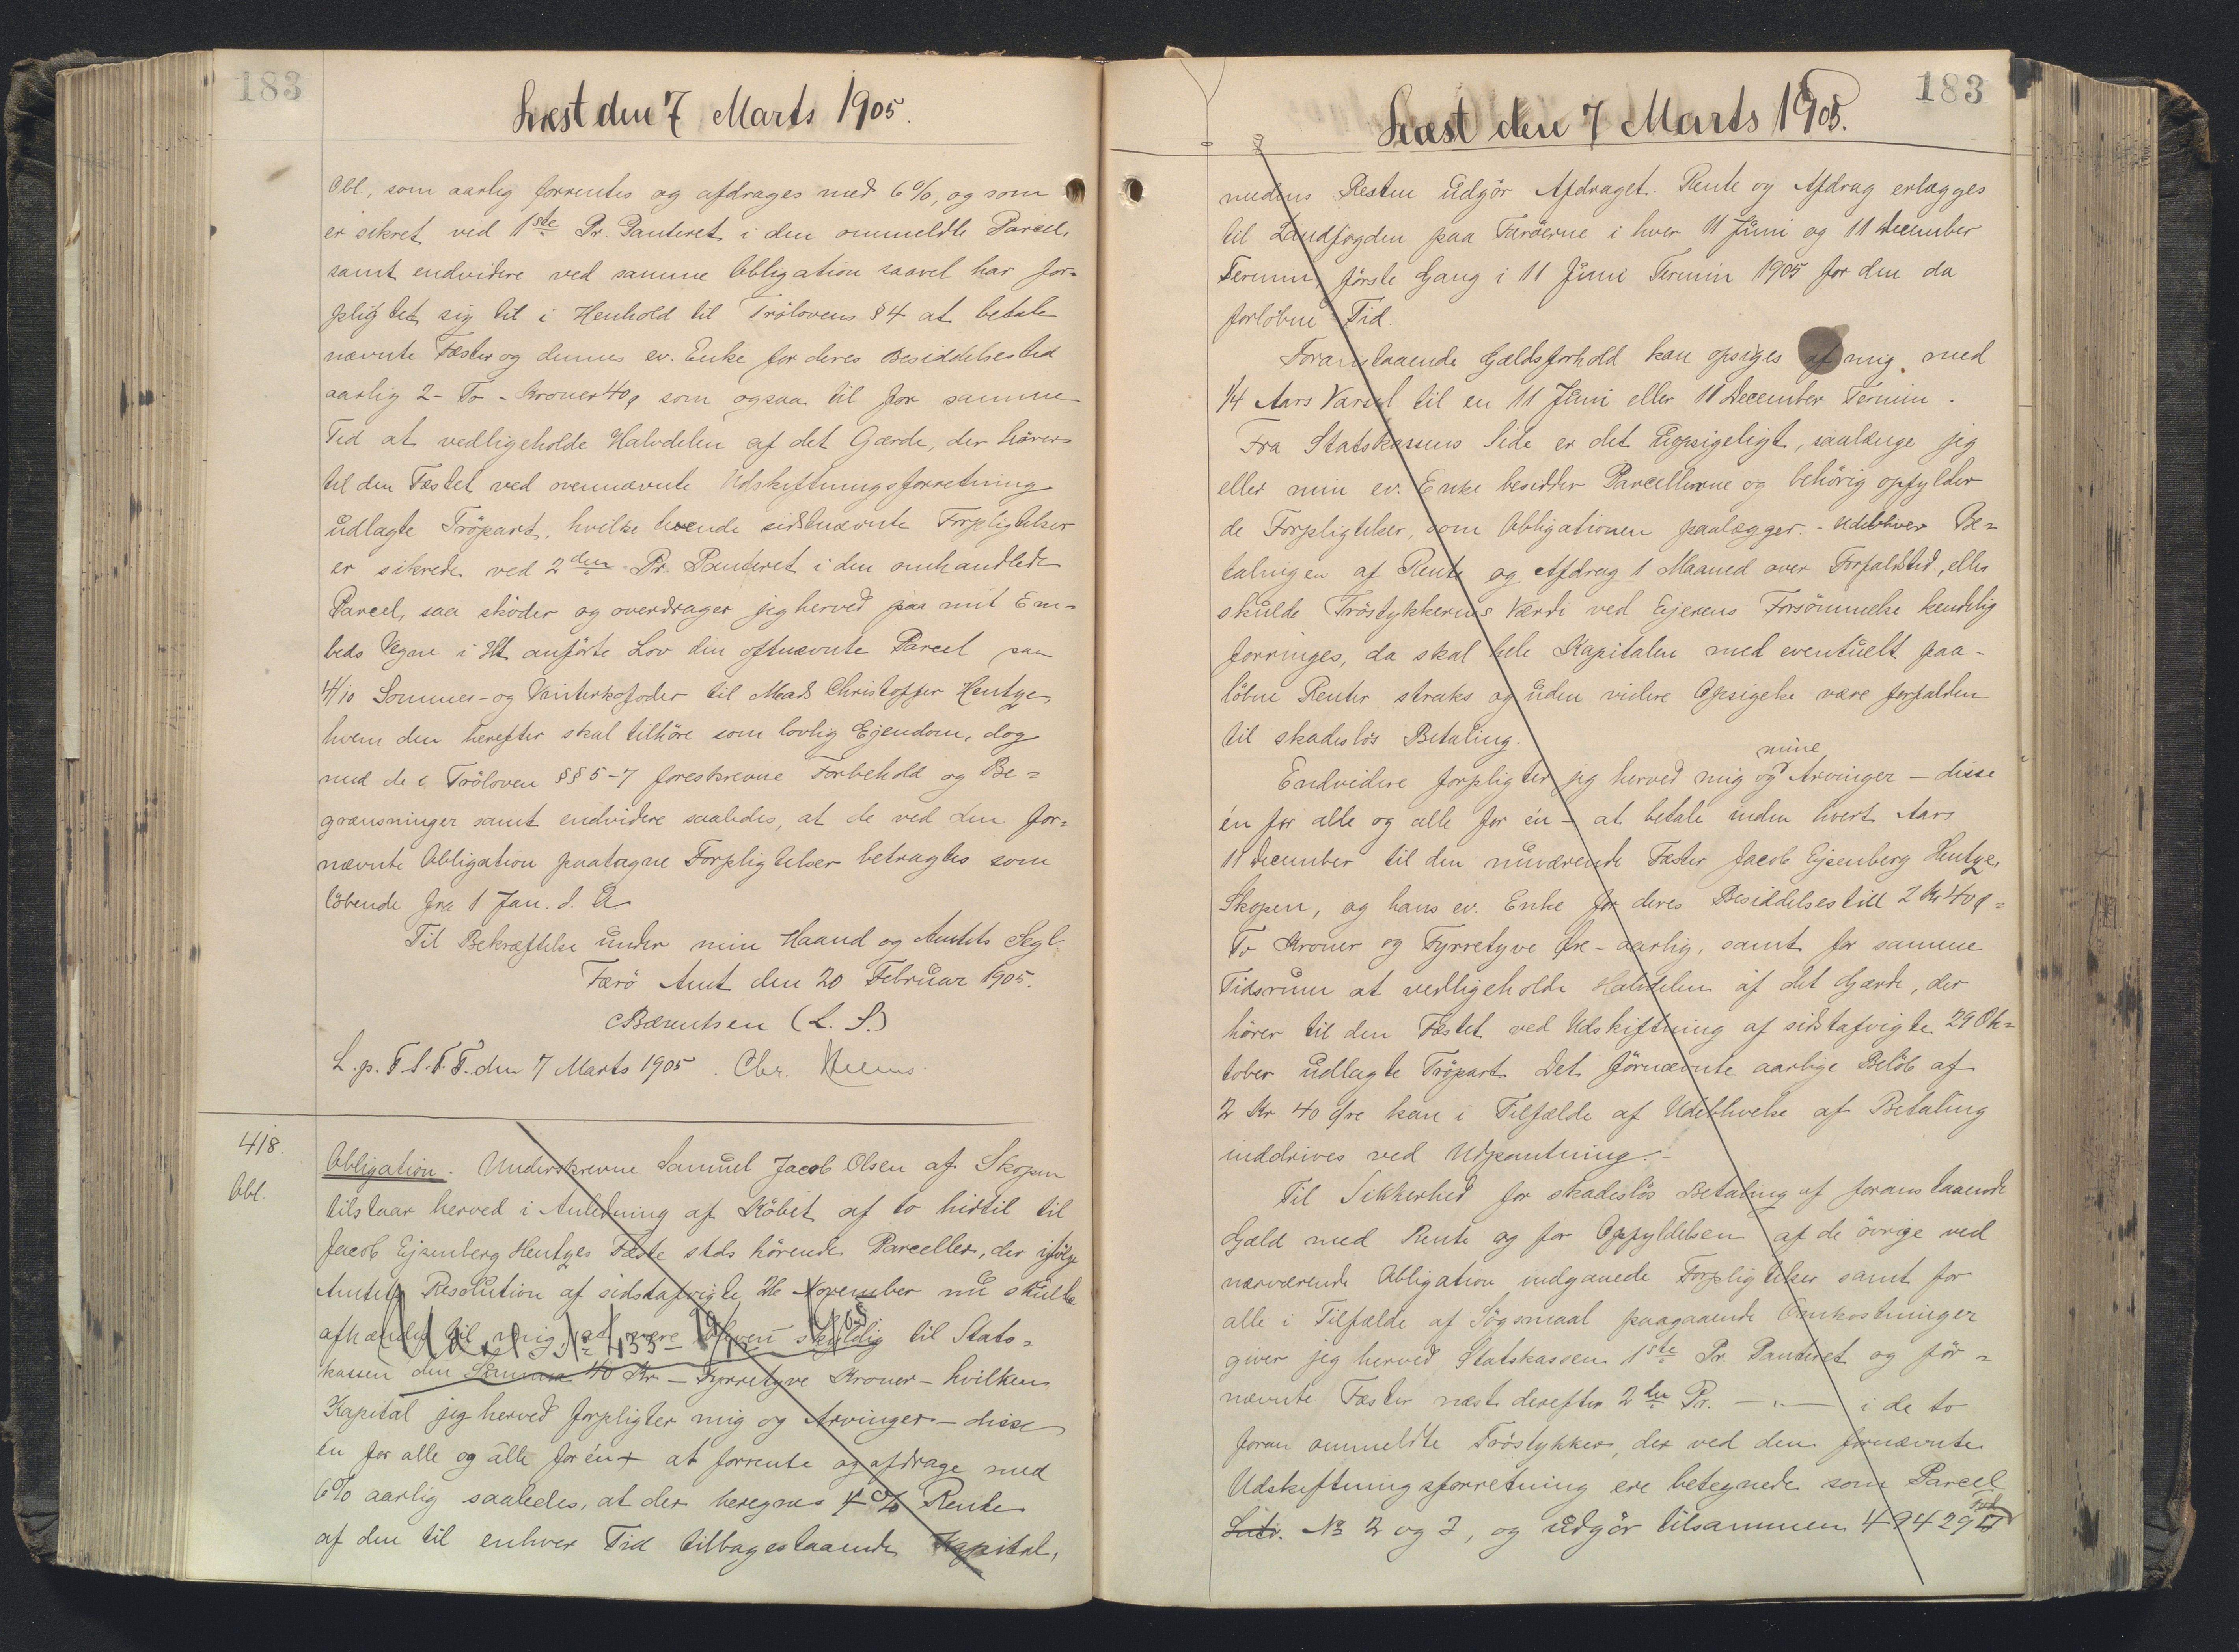 183
Læst den 7 Marts 1905.
Obl., som aarlig forrentes og afdrages med 6%, og som
er sikret ved 1ste Pr. Panteret i den ommeldte Parcel,
samt endvidere ved samme Obligation saavel har for=
pligtet sig til i Henhold til Trölovens § 4 at betale
nævnte Fæster og dennes ev. Enke for deres Besiddelsestid
aarlig 2 - To - Kroner 40 ø som ogsaa til for samme
Tid at vedligeholde Halvdelen af det Gærde, der hører
til den Fæstet ved ovennævnte Udskiftningsforretning
udlagte Tröpart, hvilke tvende sidstnævnte Forpligtelser
er sikrede ved 2den Pr. Panteret i den omhandlede
Parcel, saa sköder og overdrager jeg herved paa mit Em=
beds Vegne i Ht anførte Lov den oftnævnte Parcel paa
4/10 Sommer- og Vinterkofoder til Mads Christoffer Hentze,
hvem den herefter skal tilhöre som lovlig Ejendom, dog
med de i Tröloven §§ 5-7 foreskrevne Forbehold og Be=
grænsninger samt endvidere saaledes, at de ved den for=
nævnte Obligation paatagne Forpligtelser betragtes som
löbende fra 1 Jan. d. A.
Til Bekræftelse under min Haand og Amtets Segl.
Færö Amt den 20 Februar 1905.
CBærentsen (L. S.)
L. p. F. S. F. T. den 7 Marts 1905. Chr.
418.
Obl.
Obligation. Underskrevne Samuel Jacob Olsen af Skopun
tilstaar herved i Anledning af Köbet af to hidtil til
Jacob Ejsenberg Hentzes Fæste steds hörende Parceller, der ifølge
Amtets Resolution af sidstafvigte 26 November nu skulle
afhændes til mig, at være bleven skyldig til Stats=
kassen den Summa 40 Kr - Fyrretyve Kroner - hvilken
Kapital jeg herved forpligter mig og Arvinger - disse
én for alle og alle for én - at forrente og afdrage med
6% aarlig saaledes, at der beregnes 4% Rente
af den til enhver Tid tilbagestaaende Kapital,
183
Læst den 7 Marts 1905.
medens Resten udgör Afdraget. Rente og Afdrag erlægges
til Landfogden paa Færöerne i hver 11 Juni og 11 December
Termin, förste Gang i 11 Juni Termin 1905 for den da
forløbne Tid.
Foranstaaende Gældsforhold kan opsiges af mig med
1/4 Aars Varsel til en 11 Juni eller 11 December Termin.
Fra Statskassens Side er det Uopsigeligt, saalænge jeg
eller min ev. Enke besidder Parcellerne og behörig opfylder
de Forpligtelser, som Obligationen paalægger. - Udebliver Be=
talingen af Rente og Afdrag 1 Maaned over Forfaldstid, eller
skulde Tröstykkernes Værdi ved Ejerens Forsömmelse kendelig
forringes, da skal hele Kapitalen med eventuelt paa-
löbne Renter straks og uden videre Opsigelse være forfalden
til skadeslös Betaling.
mine
Endvidere forpligter jeg herved mig og Arvinger - disse
én for alle og alle for én - at betale inden hvert Aars
11 December til den nuværende Fæster Jacob Ejsenberg Hentze,
Skopun, og hans ev. Enke for deres Besiddelsestid 2 Kr 40 ø =
To Kroner og Fyrretyve Øre - aarlig, samt for samme
Tidsrum at vedligeholde Halvdelen af det Gærde, der
hörer til den Fæstet ved Udskiftning af sidstafvigte 29 Ok=
tober udlagte Tröpart. Det förnævnte aarlige Belöb af
2 Kr 40 Øre kan i Tilfælde af Udeblivelse af Betaling
inddrives ved Udpantning. -
Til Sikkerhed for skadeslös Betaling af foranstaaende
Gæld med Rente og for Opfyldelsen af de övrige ved
nærværende Obligation indgaaede Forpligtelser samt for
alle i Tilfælde af Sögsmaal paagaaende Omkostninger
giver jeg herved Statskassen 1ste Pr. Panteret og för=
nævnte Fæster næst derefter 2den Pr. — „ — i de to
foran ommeldte Tröstykker, der ved den fornævnte
Udskiftningsforretning ere betegnede som Parcel
Litr. No 2 og 3, og udgör tilsammen 49429